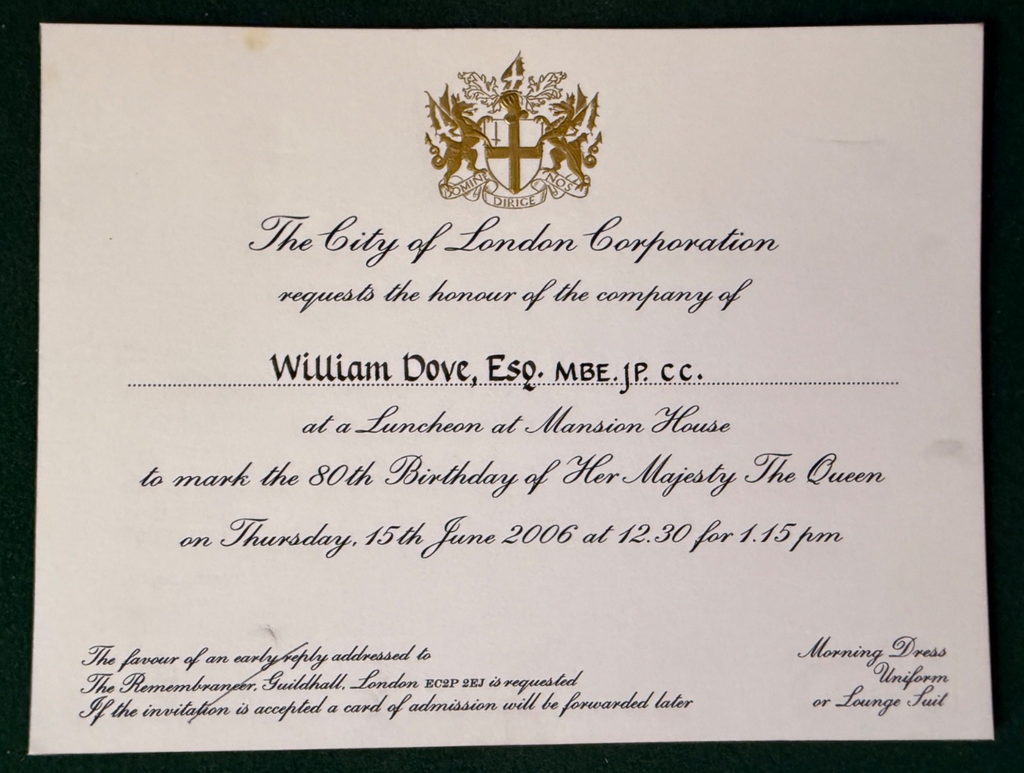 DOMINE DIRIGE NOS
The City of London Corporation
requests the honour of the company of
William Dove, Esq. MBE. JP. CC.
at a Luncheon at Mansion House
to mark the 80th Birthday of Her Majesty The Queen
on Thursday, 15th June 2006 at 12.30 for 1.15 pm
The favour of an early reply addressed to
The Remembrancer, Guildhall, London EC2P 2EJ is requested
If the invitation is accepted a card of admission will be forwarded later
Morning Dress
Uniform
or Lounge Suit